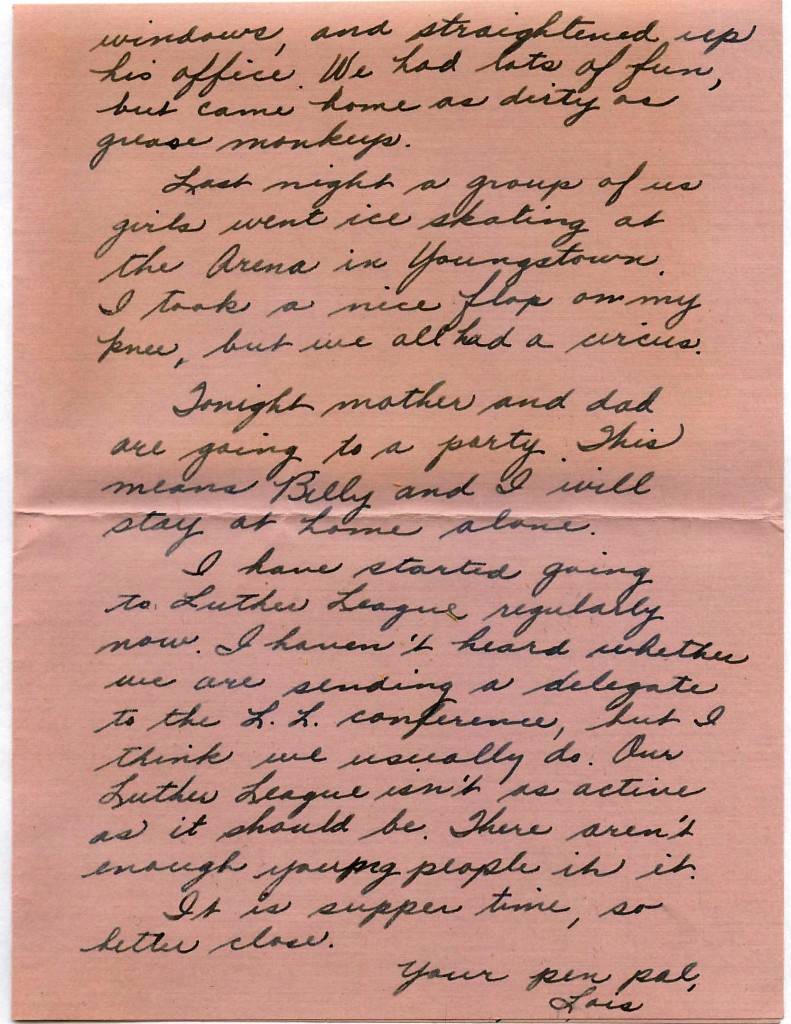 windows, and straightened up
his office. We had lots of fun,
but came home as dirty as
grease monkeys.
Last night a group of us
girls went ice skating at
the Arena in Youngstown.
I took a nice flop on my
knee, but we all had a circus.
Tonight mother and dad
are going to a party. This
means Billy and I will
stay at home alone.
I have started going
to Luther League regularly
now. I haven't heard whether
we are sending a delegate
to the L. L. conference, but I
think we usually do. Our
Luther League isn't as active
as it should be. There aren't
enough young people in it.
It is supper time, so
better close.
Your pen pal,
Lois